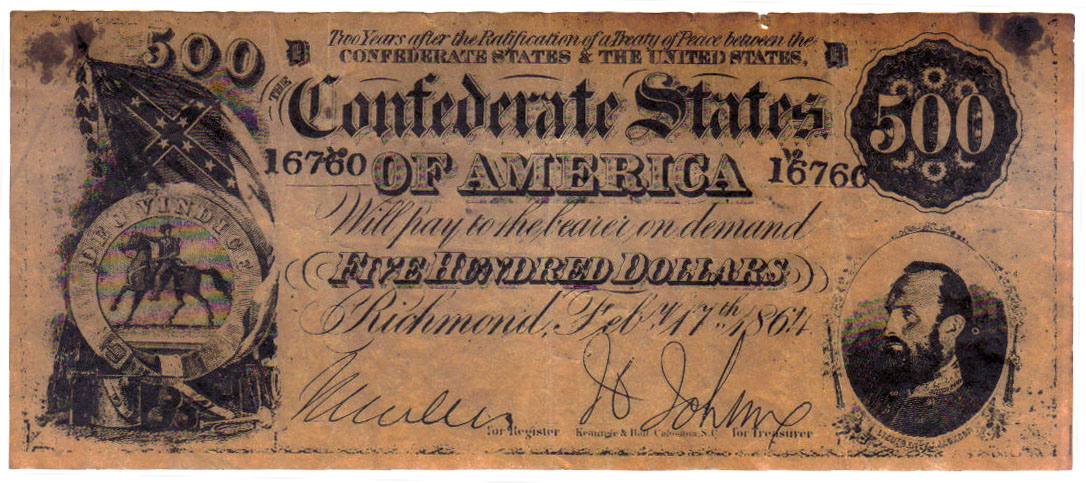 500 D Two Years after the Ratification of a Treaty of Peace between the D
CONFEDERATE STATES & THE UNITED STATES,
THE Confederate States
500
16760 OF AMERICA 16760
DEO VINDICE
Will pay to the bearer on demand
FIVE HUNDRED DOLLARS
Richmond, Feby. 17th 1864
H Johnson
for Register Keatinge & Ball Columbia, S.C. for Treasurer